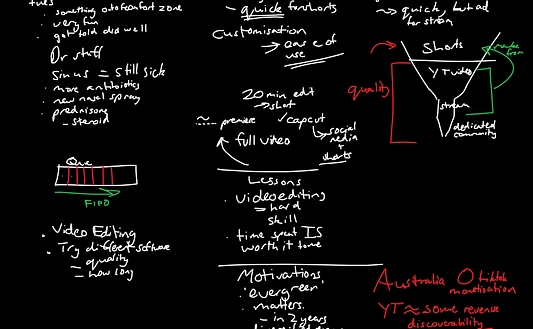 • something outofcomfort zone
• very fun
• got told did well
Dr stuff
Sinus = still sick
• more antibiotics
• new nasal spray
• prednisone
– steroid
Que
FIFO
• Video Editing
• Try different software
– quality
– how long
– quick forshorts
Customisation
→ ease of
use
20 min edit
→ shot
premiere
✓ capcut
↳ social
media
+
shorts
full video
Lessons
• video editing
= hard
skill
• time spent IS
worth it tome
Motivations
• 'evergreen'
• matters
– in 2 years
→ quick, but ad
for stream
Shorts
YT video
stream
dedicated
community
quality
maybe
from
Australia O tiktok
monetisation
YT ≈ some revenue
discoverability